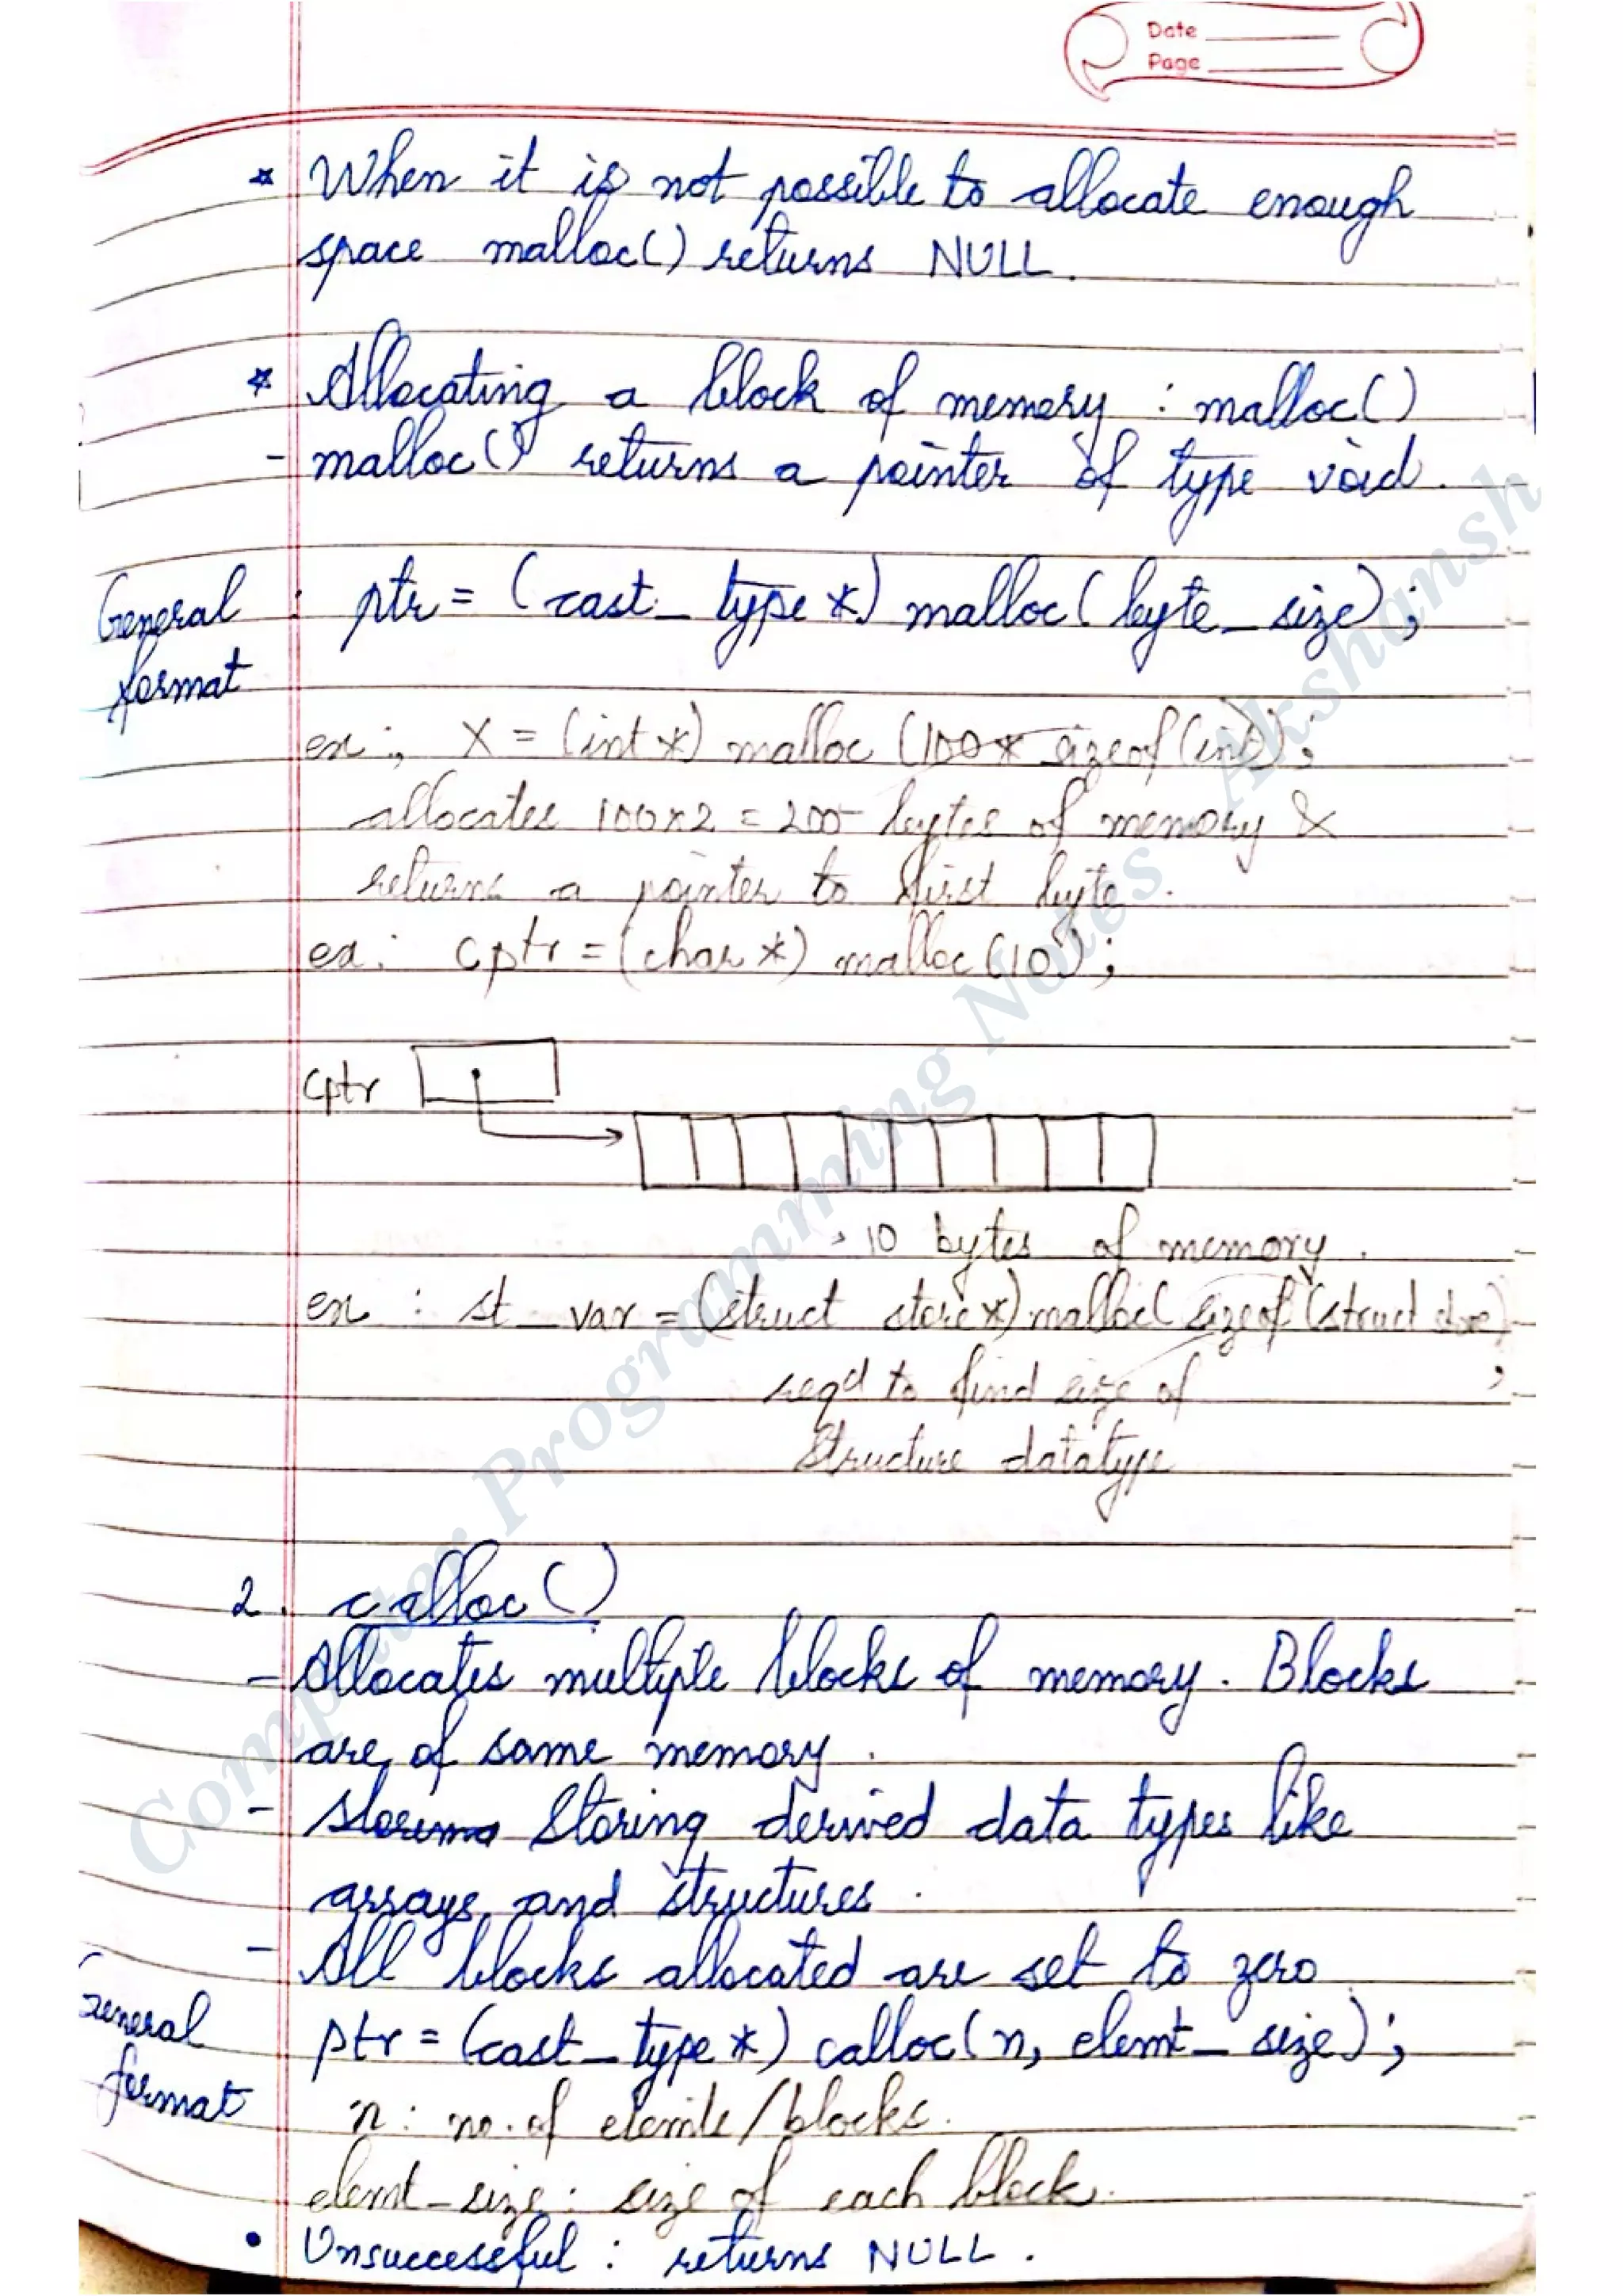 Date
Page
* When it is not possible to allocate enough
space malloc() returns NULL.
* Allocating a block of memory : malloc()
- malloc() returns a pointer of type void.
General format : ptr = (cast_type *) malloc(byte_size);
ex : X = (int *) malloc (100 * sizeof(int));
allocates 100x2 = 200 bytes of memory &
returns a pointer to first byte.
ex : cptr = (char *) malloc (10);
cptr
10 bytes of memory.
ex : st_var = (struct store *) malloc( sizeof (struct store));
reqd to find size of
structure datatype
2. calloc()
- Allocates multiple blocks of memory. Blocks
are of same memory.
- Storing derived data types like
arrays and structures.
- All blocks allocated are set to zero
General format ptr = (cast_type *) calloc(n, elemt_size);
n : no. of elemts/blocks.
elemt_size : size of each block.
• Unsuccessful : returns NULL.
Computer Programming Notes Akshansh